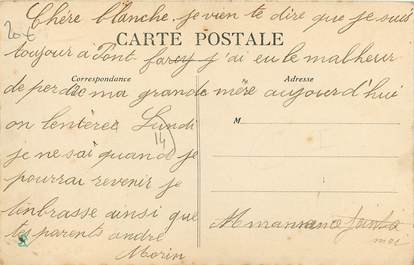 20€
Chère blanche, je vien te dire que je suis
CARTE POSTALE
toujour a Pont farcy j'ai eu le malheur
Correspondance Adresse
de perdre ma grande mère aujourd'hui
on l'enterer Lundi
M
14
je ne sai quand je
pourrai revenir je
t'inbrasse ainsi que
tes parents andré
Morin